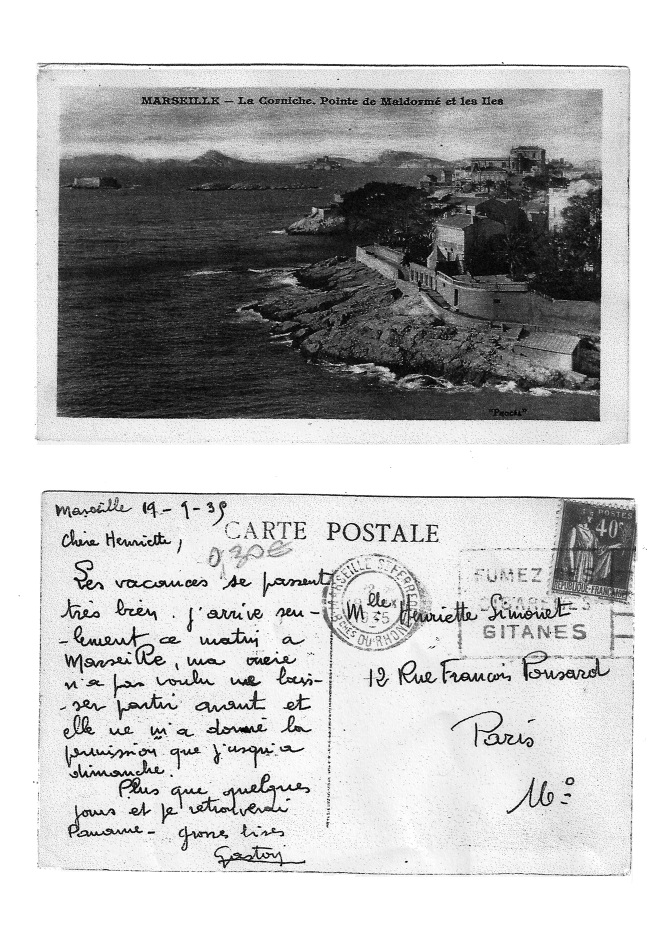 MARSEILLE – La Corniche. Pointe de Maldormé et les Iles
"PHOCEA"
Marseille 19-9-35
Chère Henriette,
CARTE POSTALE
0,30€
Les vacances se passent
très bien. J'arrive seu-
-lement ce matin a
Marseille, ma mère
n'a pas voulu me lais-
-ser partir avant et
elle ne m'a donné la
permission que j'usqu'a
dimanche.
Plus que quelques
jours et je retrouverai
Paname - grosses bises
Gaston
POSTES
40c
REPUBLIQUE FRANÇAISE
MARSEILLE ST FERREOL
1935
BCHES DU RHONE
FUMEZ
GITANES
Mlle Henriette Simonet
12 Rue François Ponsard
Paris
16e